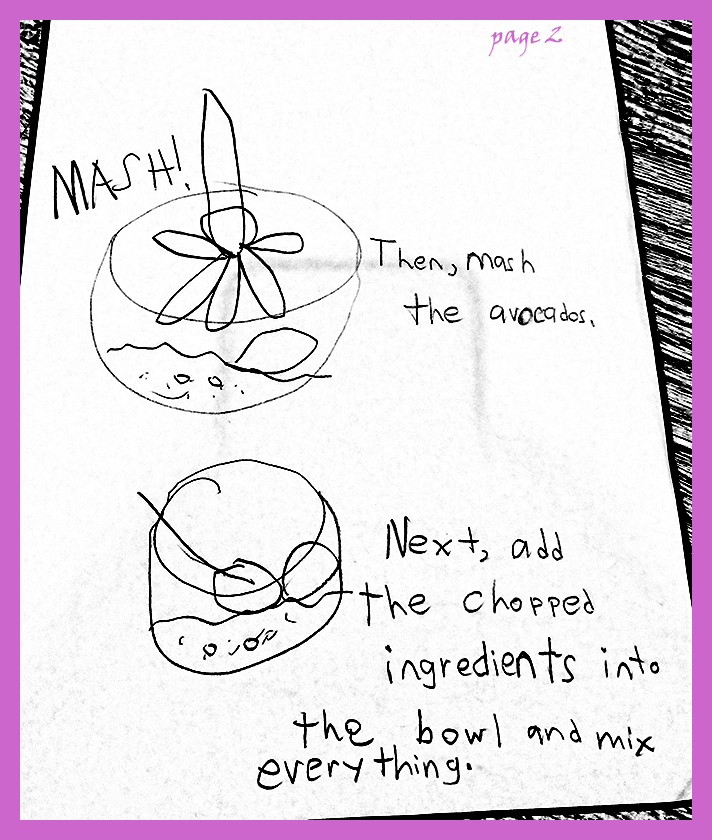 page 2
MASH!
Then, mash
the avocados.
Next, add
the chopped
ingredients into
the bowl and mix
everything.